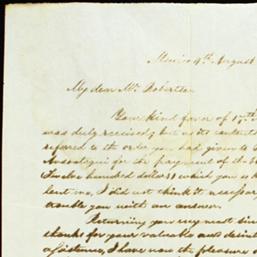 Mexico 9th August
My dear Mr. Robertson
Your kind favor of 17th
was duly received, but as its contents
referred to the order you had given to
for the payment of the
Twelve hundred dollars which you so k
lent me, I did not think it necessary
trouble you with an answer.
Returning you my most sin
thanks for your valuable and disint
assistance, I have now the pleasure